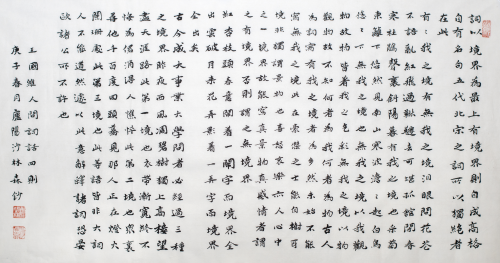 詞以境界為最上有境界則自成高格
自有名句五代北宋之詞所以獨絕者
在此
有有我之境有無我之境淚眼問花花
不語亂紅飛過鞦韆去可堪孤館閉春
寒杜鵑聲裏斜陽暮有我之境也採菊
東籬下悠然見南山寒波澹澹起白鳥
悠悠下無我之境也有我之境以我觀
物故物皆著我之色彩無我之境以物
觀物故不知何者為我何者為物古人
為詞寫有我之境者為多然未始不能
寫無我之境此在豪傑之士能自樹耳
境非獨謂景物也喜怒哀樂亦人心中
之一境界故能寫真景物真感情者謂
之有境界否則謂之無境界
紅杏枝頭春意鬧著一鬧字而境界全
出雲破月來花弄影著一弄字而境界
全出矣
古今成大事業大學問者必經過三種
之境界昨夜西風凋碧樹獨上高樓望
盡天涯路此第一境也衣帶漸寬終不
悔為伊消得人憔悴此第二境也眾裏
尋他千百度回頭驀見那人正在燈火
闌珊處此第三境也此等語皆非大詞
人不能道然遽以此意解釋諸詞恐晏
歐諸公所不許也
王國維人間詞話四則
庚子春月盧陽沙林森鈔